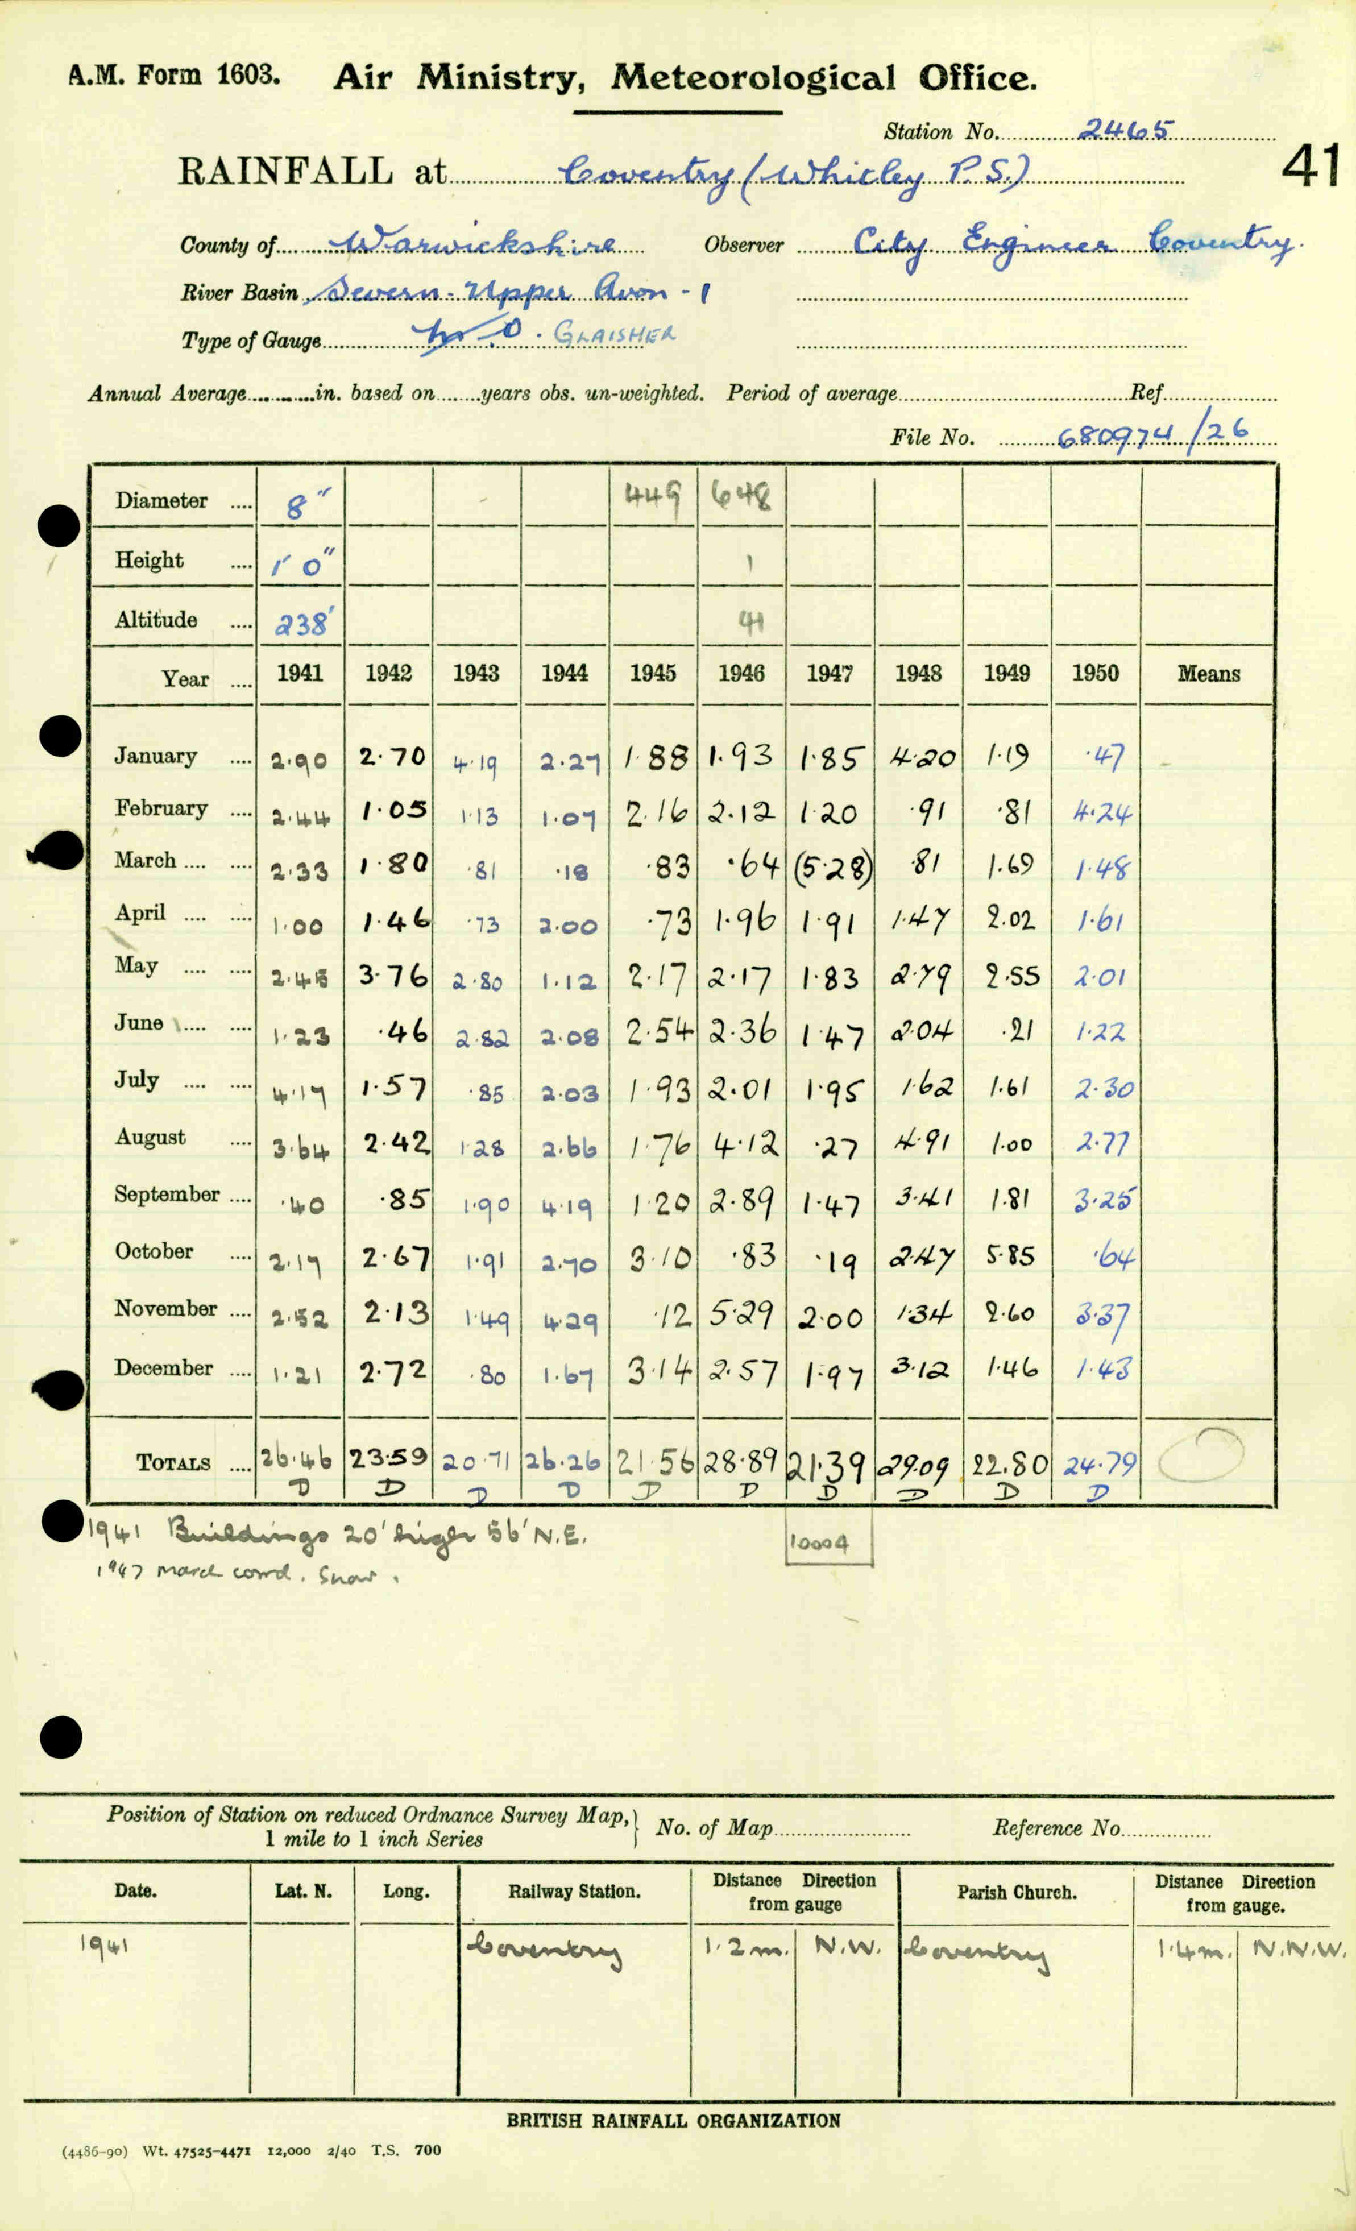 A.M. Form 1603. Air Ministry, Meteorological Office.
Station No. 2465
41
RAINFALL at Coventry (Whitley P.S.)
County of Warwickshire Observer City Engineer Coventry.
River Basin Severn - Upper Avon - 1
Type of Gauge M.O. GLAISHER
Annual Average in. based on years obs. un-weighted. Period of average Ref.
File No. 680974/26
Diameter .... 8" 449 648
Height .... 1' 0" 1
Altitude .... 238' 41
Year .... 1941 1942 1943 1944 1945 1946 1947 1948 1949 1950 Means
January .... 2.90 2.70 4.19 2.27 1.88 1.93 1.85 4.20 1.19 .47
February .... 2.44 1.05 1.13 1.07 2.16 2.12 1.20 .91 .81 4.24
March .... .... 2.33 1.80 .81 .18 .83 .64 (5.28) .81 1.69 1.48
April .... .... 1.00 1.46 .73 2.00 .73 1.96 1.91 1.47 2.02 1.61
May .... .... 2.45 3.76 2.80 1.12 2.17 2.17 1.83 2.79 2.55 2.01
June .... .... 1.23 .46 2.82 2.08 2.54 2.36 1.47 2.04 .21 1.22
July .... .... 4.17 1.57 .85 2.03 1.93 2.01 1.95 1.62 1.61 2.30
August .... 3.64 2.42 1.28 2.66 1.76 4.12 .27 4.91 1.00 2.77
September .... .40 .85 1.90 4.19 1.20 2.89 1.47 3.41 1.81 3.25
October .... 2.17 2.67 1.91 2.70 3.10 .83 .19 2.47 5.85 .64
November .... 2.52 2.13 1.49 4.29 .12 5.29 2.00 1.34 2.60 3.37
December .... 1.21 2.72 .80 1.67 3.14 2.57 1.97 3.12 1.46 1.43
TOTALS .... 26.46 23.59 20.71 26.26 21.56 28.89 21.39 29.09 22.80 24.79
D D D D D D D D D D
1941 Buildings 20' high 56' N.E.
10004
1947 March corrd. Snow.
Position of Station on reduced Ordnance Survey Map, } No. of Map Reference No.
1 mile to 1 inch Series
Date. Lat. N. Long. Railway Station. Distance Direction from gauge Parish Church. Distance Direction from gauge.
1941 Coventry 1.2 m. N.W. Coventry 1.4 m. N.N.W.
BRITISH RAINFALL ORGANIZATION
(4486-90) Wt. 47525-4471 12,000 2/40 T.S. 700